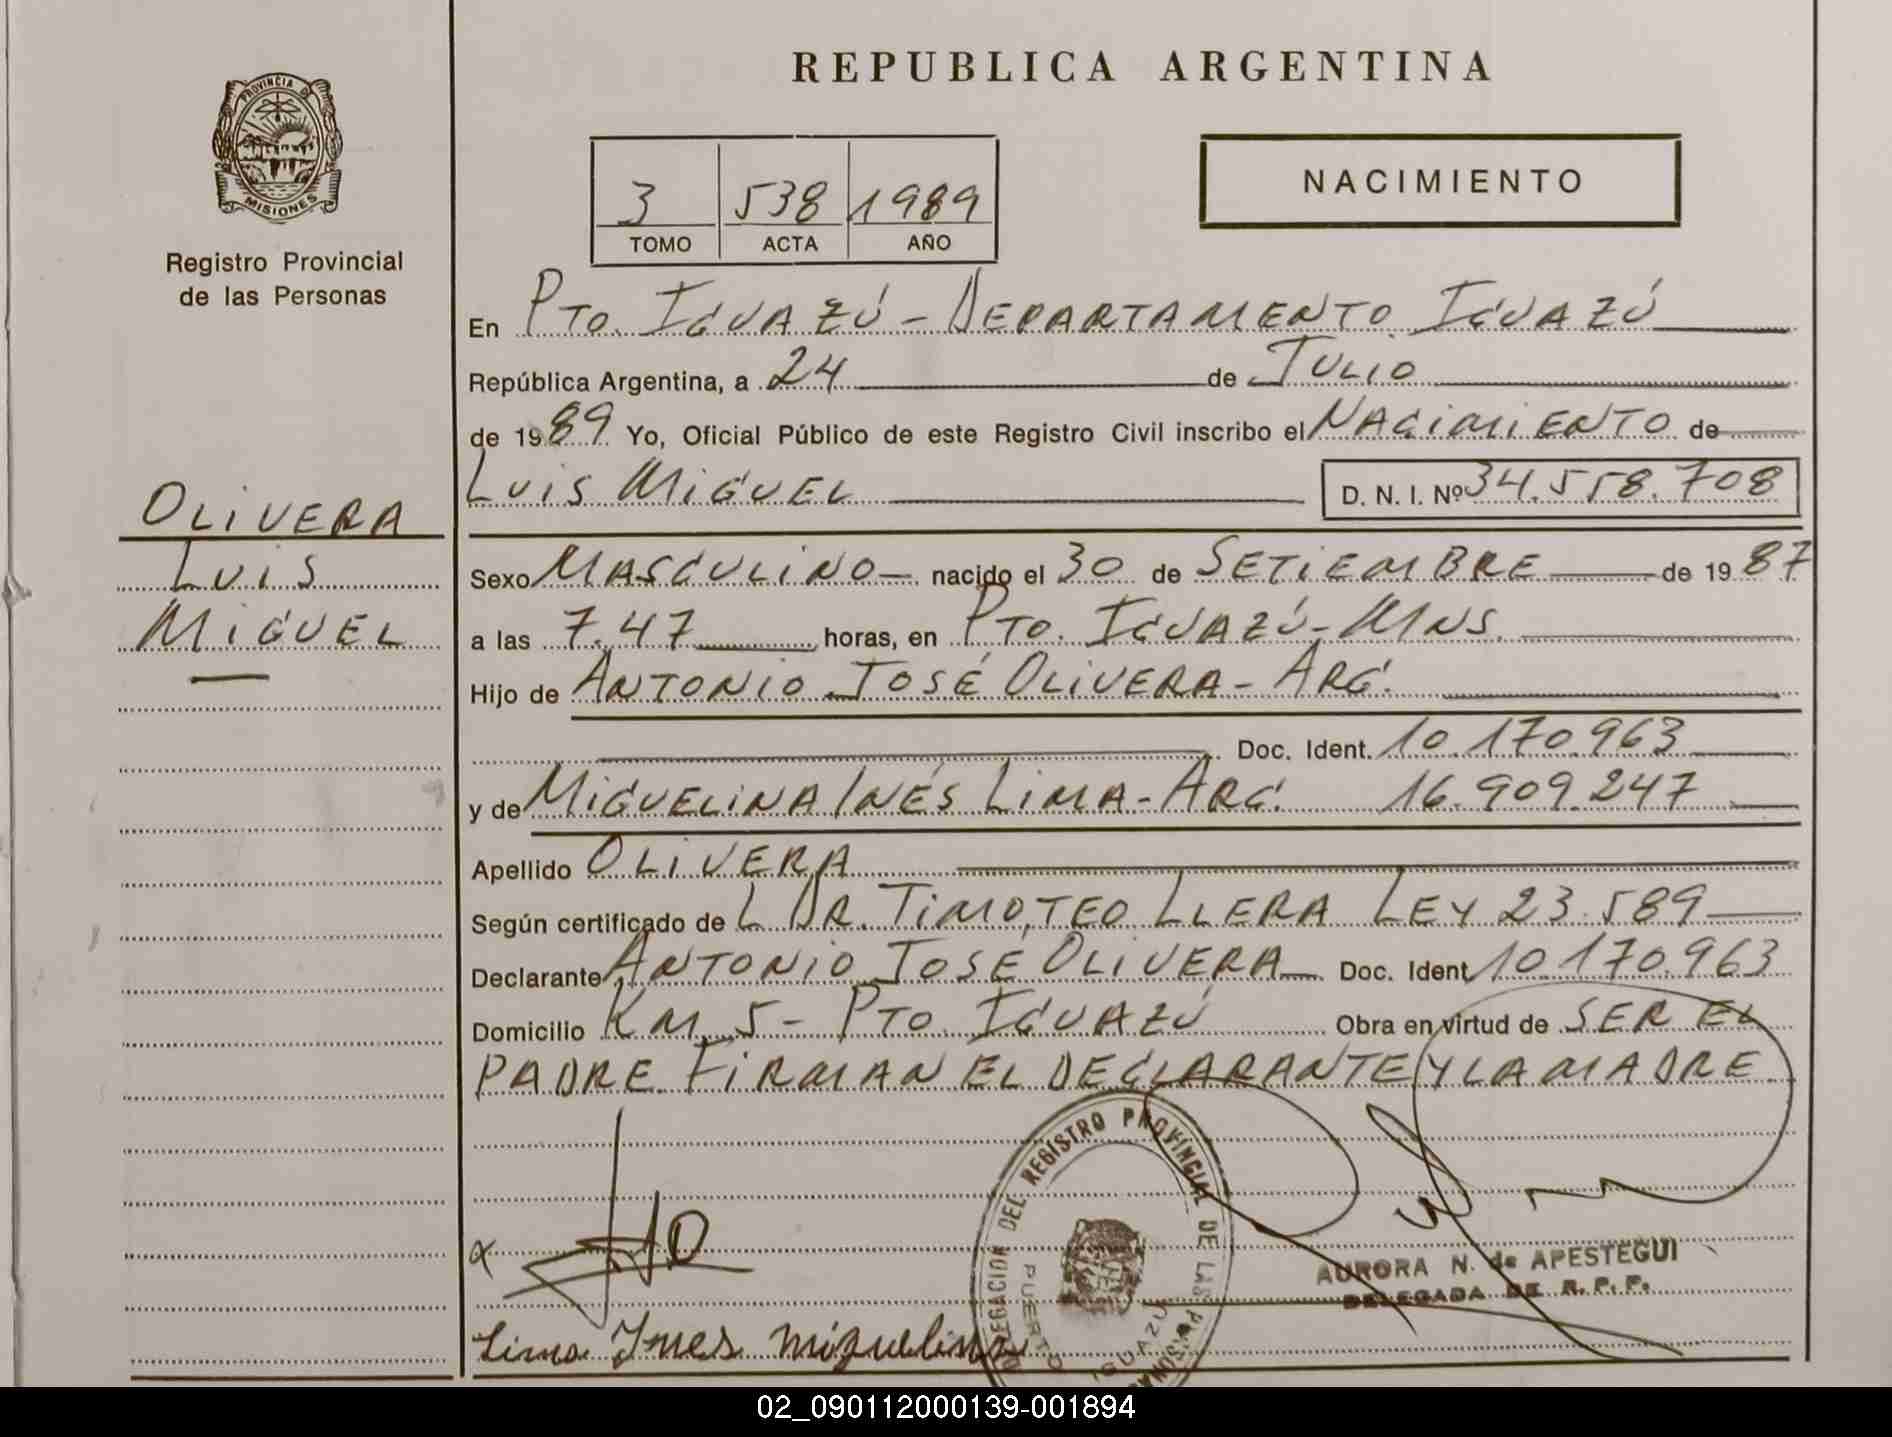 REPUBLICA ARGENTINA
PROVINCIA DE
MISIONES
Registro Provincial
de las Personas
3 538 1989
TOMO ACTA AÑO
NACIMIENTO
En Pto. Iguazú - Departamento Iguazú
República Argentina, a 24 de Julio
de 1989 Yo, Oficial Público de este Registro Civil inscribo el Nacimiento de
Luis Miguel D. N. I. Nº 34.558.708
OLIVERA
Luis
Miguel
Sexo Masculino nacido el 30 de Setiembre de 1987
a las 7.47 horas, en Pto. Iguazú - Mns.
Hijo de Antonio José Olivera - Arg.
Doc. Ident. 10.170.963
y de Miguelina Inés Lima - Arg. 16.909.247
Apellido Olivera
Según certificado de L Dr. Timoteo Llera Ley 23.589
Declarante Antonio José Olivera Doc. Ident. 10.170.963
Domicilio Km 5 - Pto. Iguazú Obra en virtud de ser el
padre. Firman el declarante y la madre
DELEGACION DEL REGISTRO PROVINCIAL DE LAS PERSONAS
PUERTO IGUAZU
AURORA N. de APESTEGUI
DELEGADA DE R. P. P.
Lima Ines Miguelina
02_090112000139-001894